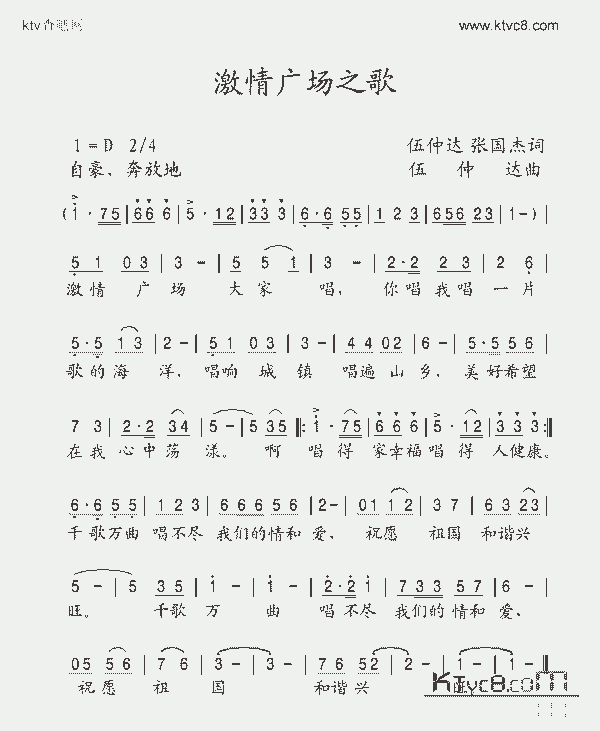 ktv吧 www.ktvc8.com
激情广场之歌
1=D 2/4 伍仲达 张国杰词
自豪、奔放地 伍 仲 达曲
(1·75|666|5·12|333|6·6 55|1 2 3|656 23|1-)|
5 1 03|3-|5 5 1|3-|2·2 23|2 6|
激情 广 场 大家 唱, 你唱我唱一片
5·5 13|2-|51 03|3-|44 02|6-|5·5 56|
歌的海 洋, 唱响 城镇 唱遍 山乡, 美好希望
7 3|2·2 34|5-|5 35‖:1·75|666|5·12|333:‖
在我 心中荡 漾。 啊 唱得 家幸福唱得 人健康。
6·6 55|123|666 56|2-|01 12|37|63 23|
千歌万曲 唱不尽 我们的情和 爱, 祝愿 祖国 和谐兴
5-|5 35|1-|1-|2·2 1|733 57|6-|
旺。 千歌 万 曲 唱不尽 我们的情和 爱,
05 56|7 6|3-|3-|76 52|2-|1-|1-‖
祝愿 祖 国 和谐兴
KTvc8.com